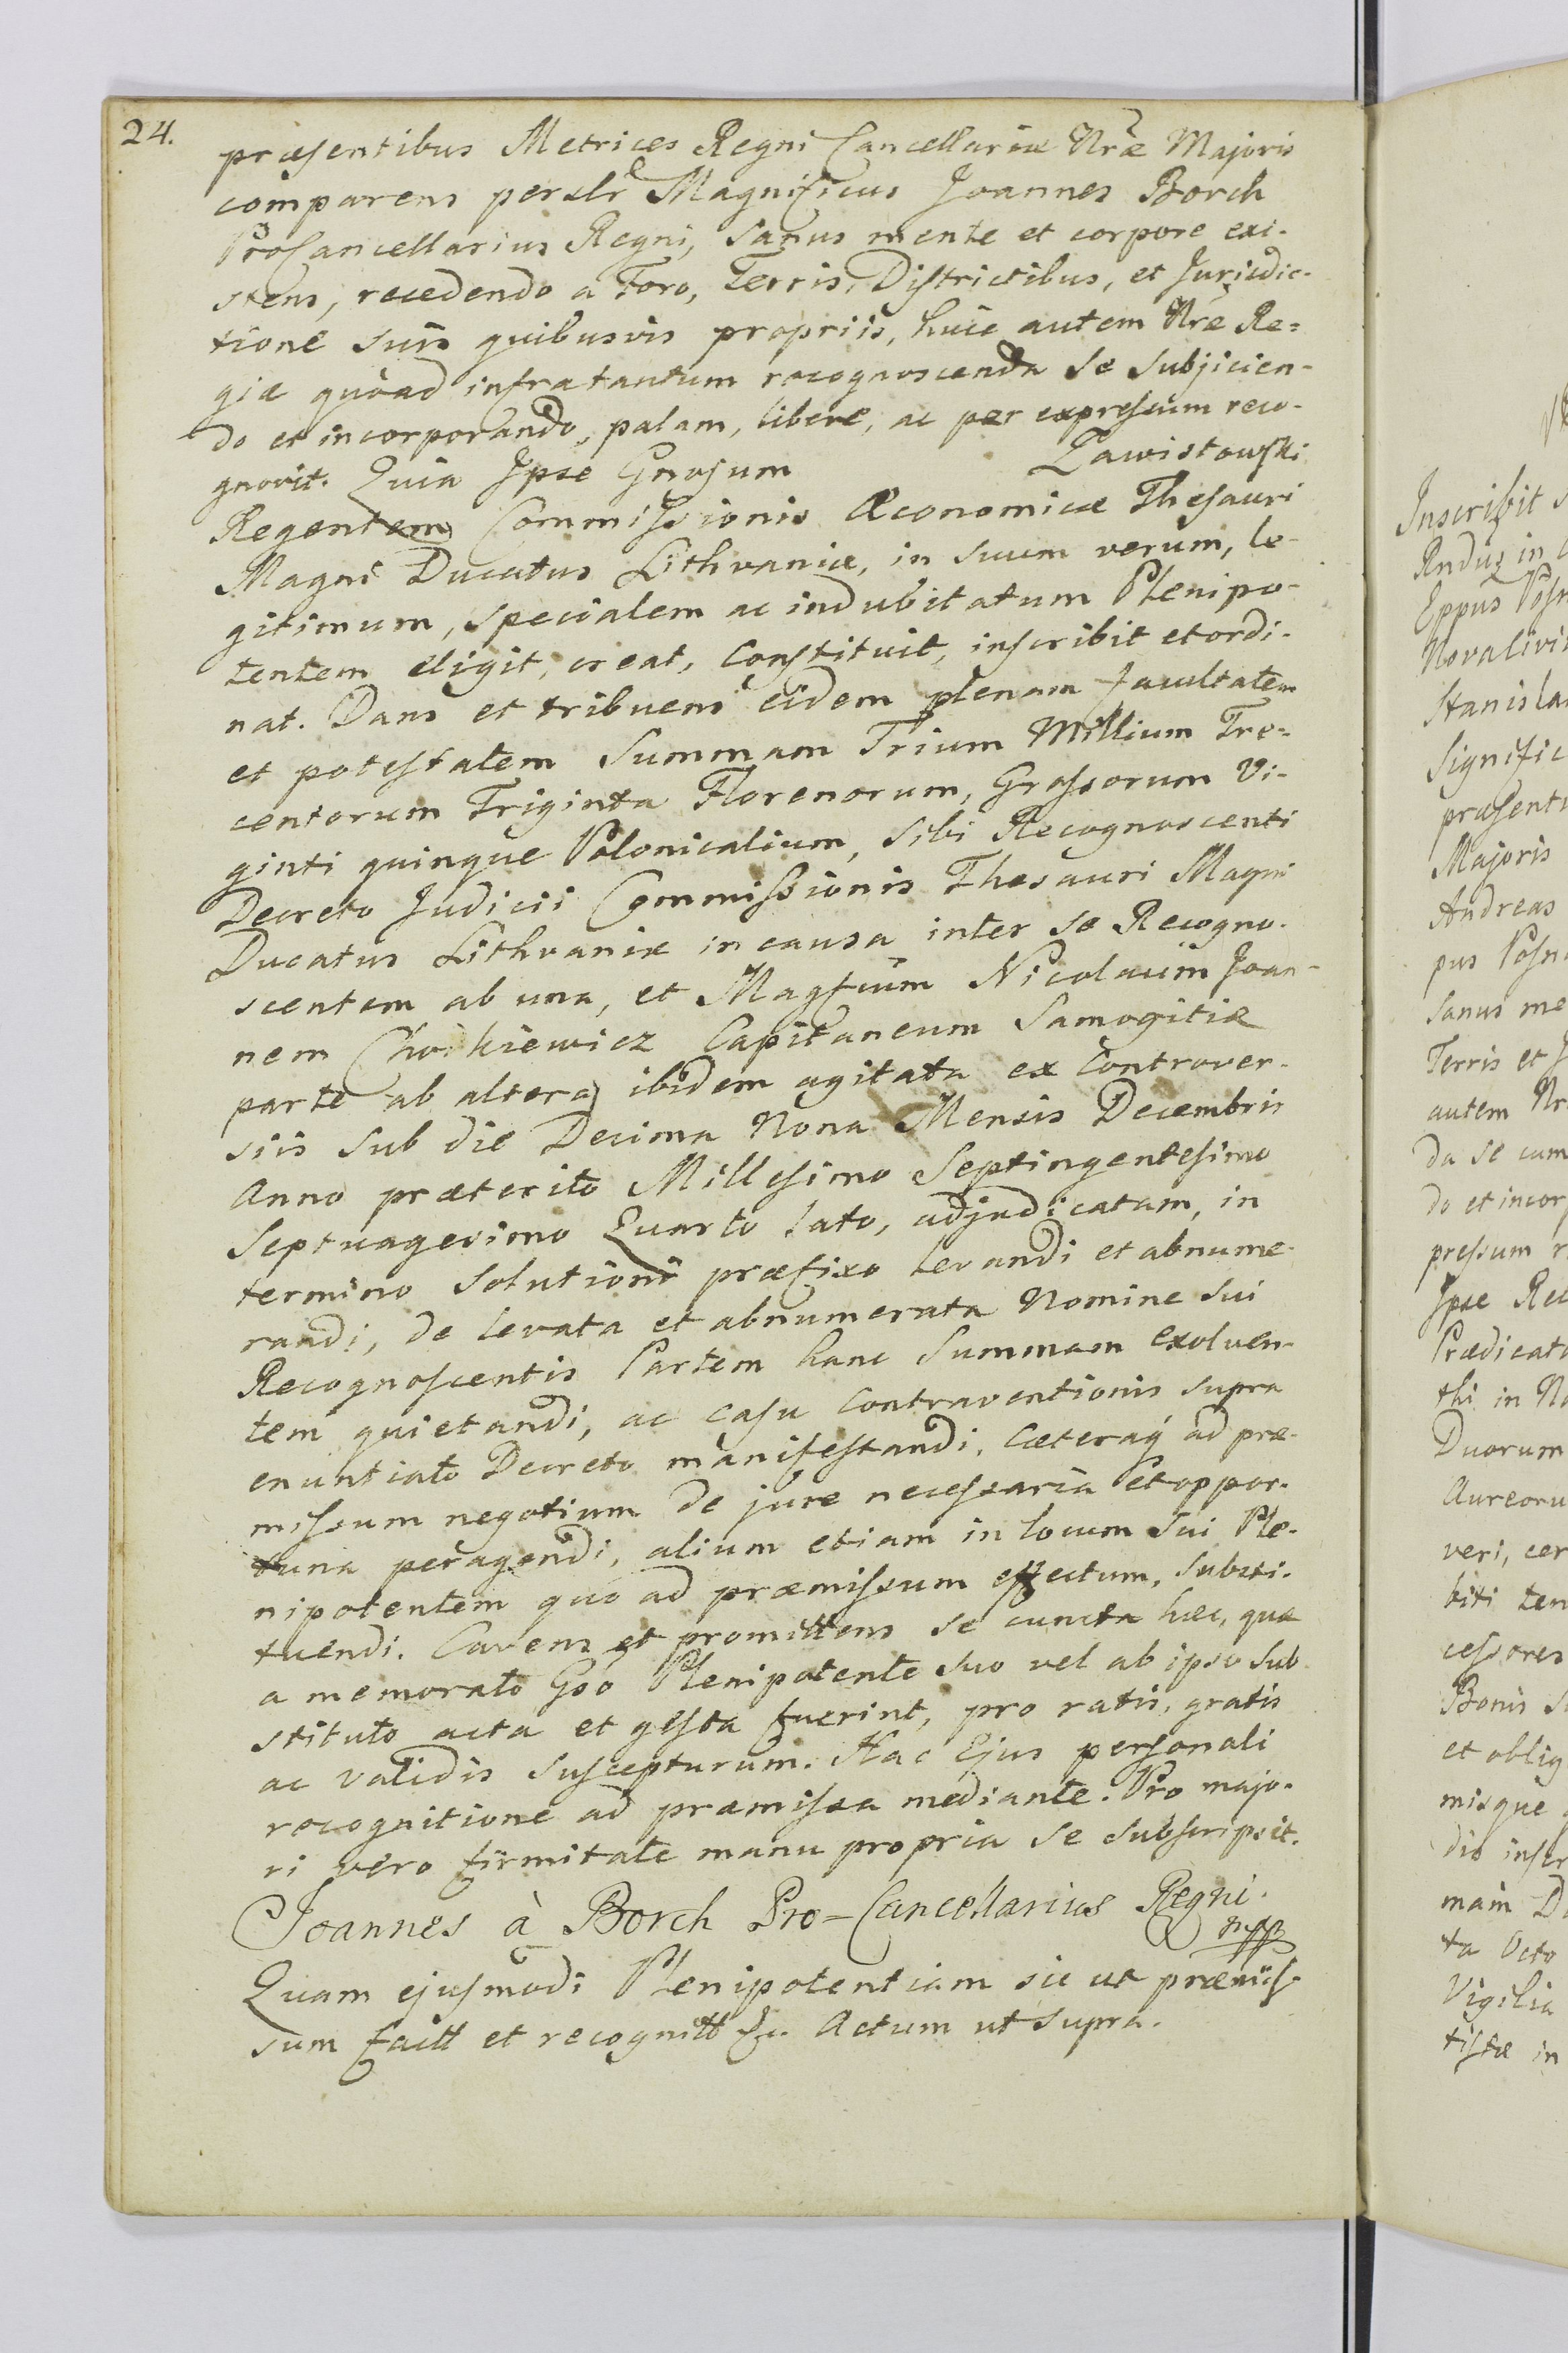 24.
præsentibus Metrices Regni Cancellariæ Nræ Majoris
comparens perslr Magnificus Joannes Borch
ProCancellarius Regni, Sanus mente et corpore exi-
stens, recedendo a Foro, Terris, Districtibus, et Jurisdic-
tione suis quibusvis propriis, huic autem Nræ Re=
giæ quoad infra tantum recognoscenda Se Subjicien-
do et incorporando, palam, libere, ac per expressum reco-
gnovit. Quia Ipse Gnosum Zawistowski
Regentem Commissionis Œconomicæ Thesauri
Magni Ducatus Lithvaniæ, in Suum verum, le-
gitimum, specialem ac indubitatum Plenipo-
tentem eligit, creat, Constituit, inscribit et ordi-
nat. Dans et tribuens eidem plenam facultatem
et potestatem Summam Trium Millium Tre=
centorum Triginta Florenorum, Grossorum Vi-
ginti quinque Polonicalium, Sibi Recognoscenti
Decreto Judicii Commissionis Thesauri Magni
Ducatus Lithvaniæ in causa inter Se Recogno-
scentem ab una, et Magfcum Nicolaum Joan-
nem Chodkiewicz Capitaneum Samogitiæ
parte ab altera ibidem agitata ex Controver-
siis Sub die Decima Nona Mensis Decembris
Anno præterito Millesimo Septingentesimo
Septuagesimo Quarto lato, adjudicatam, in
termino Solutioni præfixo levandi et abnume-
randi, de levata et abnumerata Nomine Sui
Recognoscentis Partem hanc Summam exolven-
tem quietandi, ac casu Contraventionis supra
enuntiato Decreto manifestandi. Cæteraq́ ad præ-
missum negotium de jure necessaria et oppor-
tuna peragendi, alium etiam in locum Sui Ple-
nipotentem quo ad præmissum effectum, Substi-
tuendi. Cavens et promittens se cuncta hæc, quæ
a memorato Gso Plenipotente Suo vel ab ipso Sub
stituto acta et gesta fuerint, pro ratis, gratis
ac validis Suscepturum. Hac Ejus personali
recognitione ad præmissa mediante. Pro majo-
ri vero firmitate manu propria Se Subscripsit.
Joannes à Borch Pro=Cancellarius Regni.
mpp
Quam ejusmodi Plenipotentiam sic ut præmis-
sum facit et recognitt &c. Actum ut Supra.
Inscribit
Andus in
Eppus
Stanisla
Signific
præsenti
Majoris
Andreas
pus Posn
Sanus me
Terris et J
autem Nr
da Se cum
do et incor
pressum r
Ipse Rec
Prædicat
thi in Na
Duorum
Aureoru
veri, cer
biti ten
cessores
Bonis S
et oblig
misque
dis inscr
mam D
ta Octo
Vigilia
tistæ in